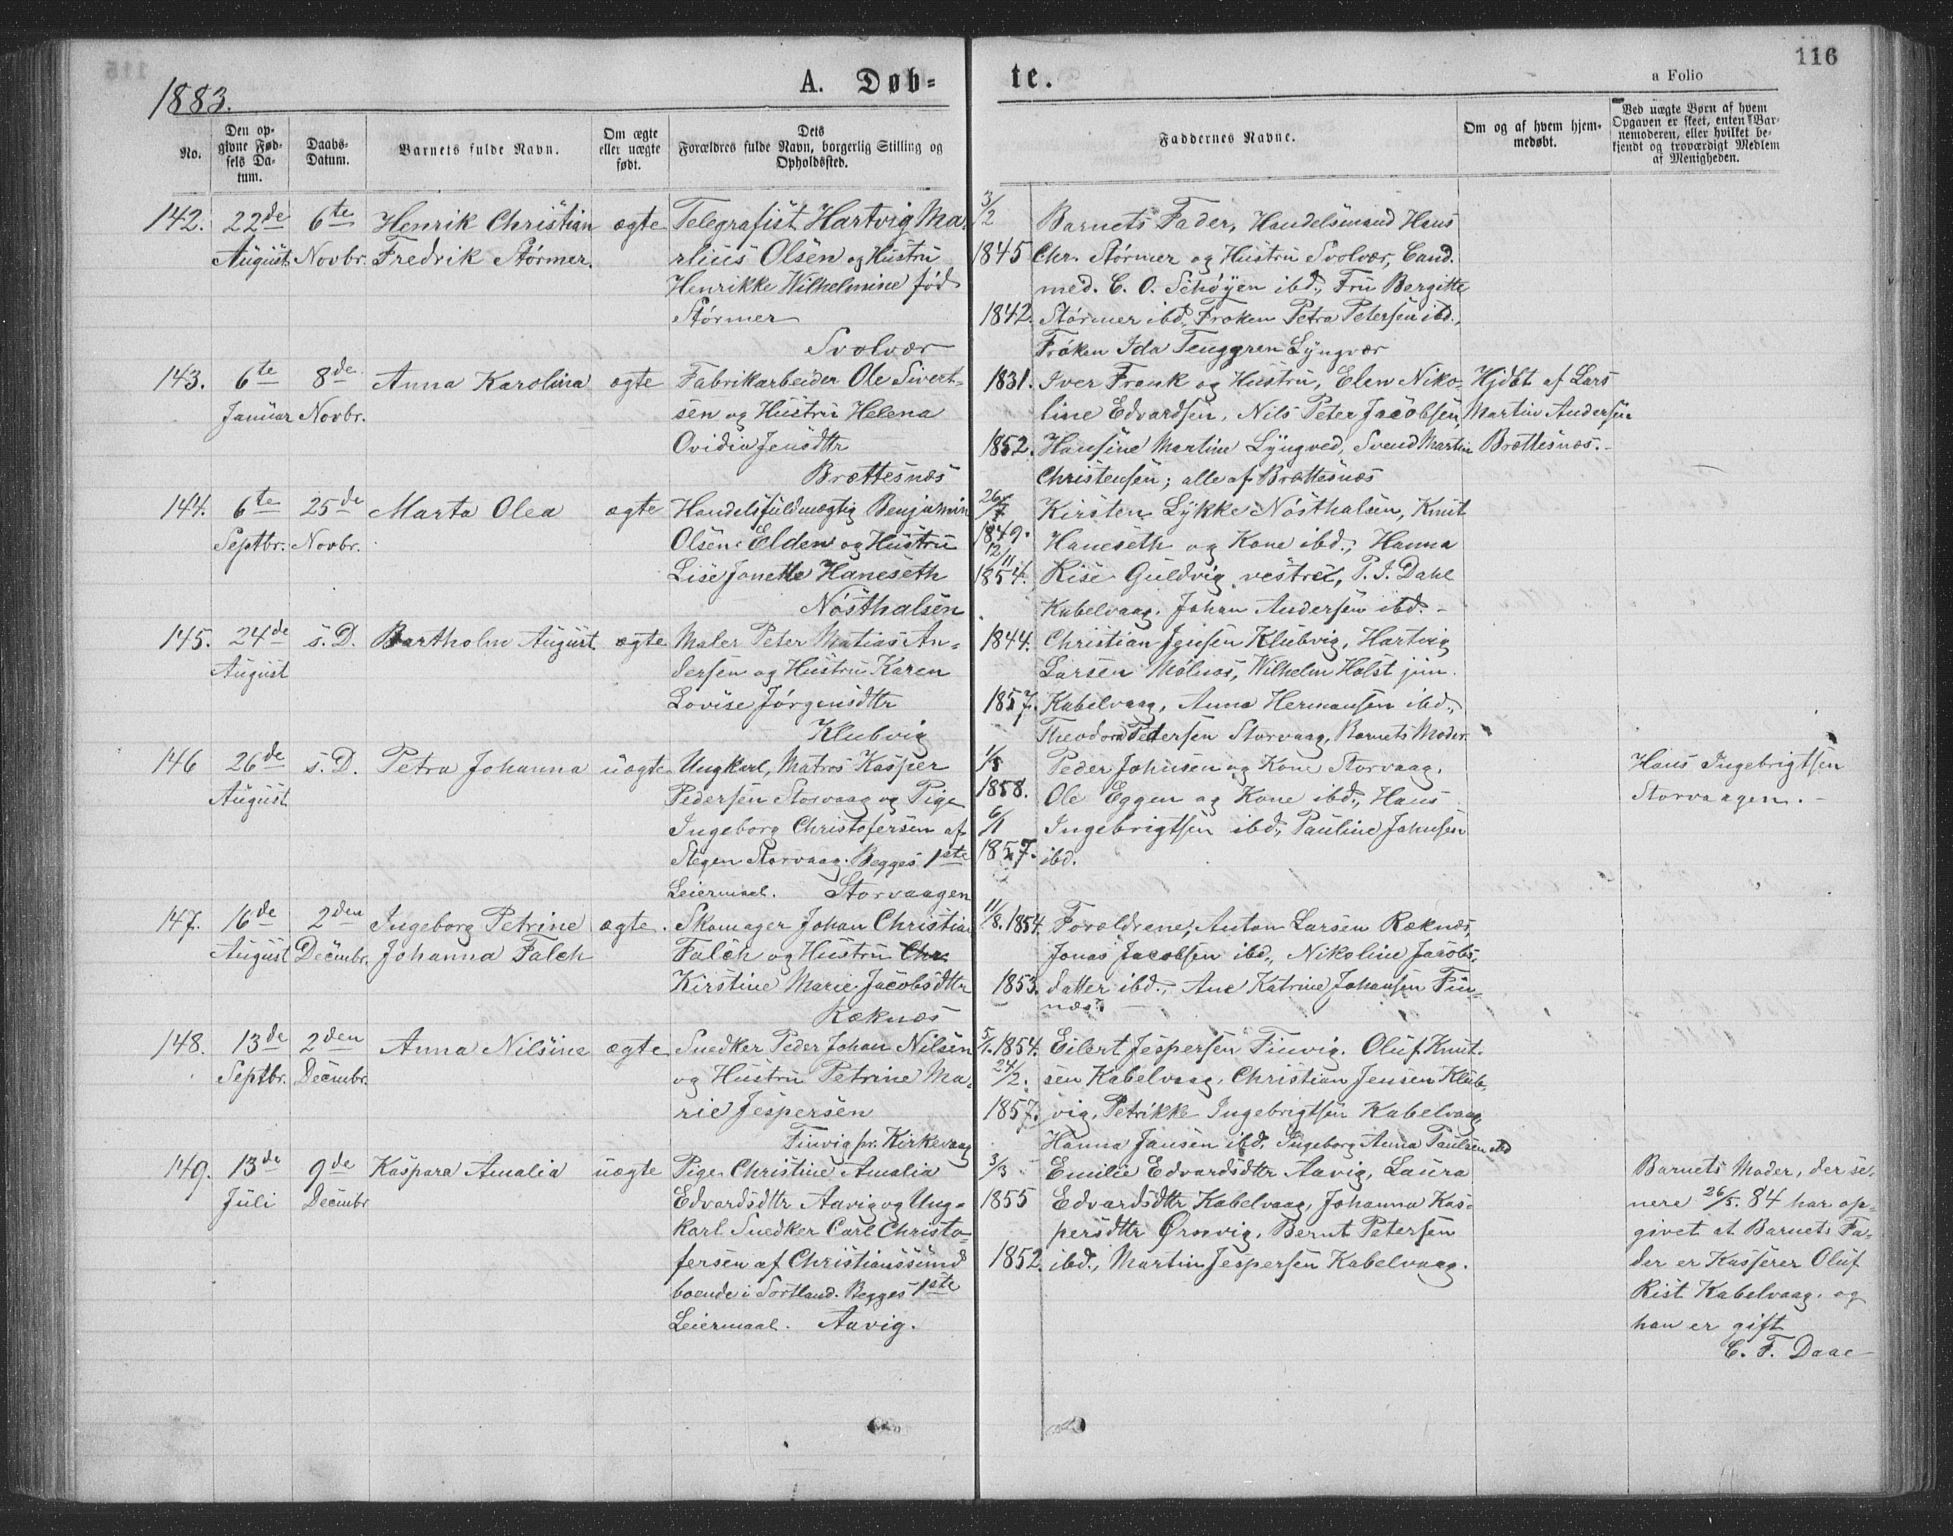 116
1883.
A. Døb-
te.
a Folio
No.
Den op-
givne Fød-
sels Da-
tum.
Daabs-
Datum.
Barnets fulde Navn.
Om ægte
eller uægte
født.
Dets
Forældres fulde Navn, borgerlig Stilling og
Opholdssted.
Faddernes Navne.
Om og af hvem hjem-
medøbt.
Ved uægte Børn af hvem
Opgaven er skeet, enten Bar-
nemoderen, eller hvilket be-
kjendt og troværdigt Medlem
af Menigheden.
142. 22de August 6te Novbr. Henrik Christian
Fredrik Størmer. ægte
Telegrafist Hartvig Ma-
rlius Olsen og Hustru
Henrikke Wilhelmine fød
Størmer
Svolvær
3/2
1845
1842.
Barnets Fader, Handelsmand Hans
Chr. Størmer og Hustru Svolvær, Cand.
med. C. O. Schøyen ibd., Fru Bergitte
Størmer ibd., Frøken Petra Petersen ibd.,
Frøken Ida Tenggren Lyngvær
143. 6te Januar 8de Novbr. Anna Karolina ægte
Fabrikarbeider Ole Sivert-
sen og Hustru Helena
Ovidia Jensdtr
Brættesnæs
1831.
1852.
Iver Frank og Hustru, Elen Niko-
line Edvardsen, Nils Peter Jacobsen,
Hansine Martine Lyngved, Svend Martin
Christensen; alle af Brættesnæs
Hjdbt af Lars
Martin Andersen
Brættesnæs.
144. 6te Septbr. 25de Novbr. Marta Olea ægte
Handelsfuldmægtig Benjamin
Olsen Elden og Hustru
Lise Jonette Haneseth
Nøsthalsen
26/7
1849.
12/11
1854.
Kirsten Lykke Nøsthalsen, Knut
Haneseth og Kone ibd., Hanna
Rise Guldvig vestre, P. J. Dahl
Kabelvaag, Johan Andersen ibd.
145. 24de August s. D. Bartholm August ægte
Maler Peter Matias An-
dersen og Hustru Karen
Lovise Jørgensdtr
Klubvig
1844.
1857.
Christian Jensen Klubvig, Hartvig
Larsen Mølnæs, Wilhelm Holst jun.
Kabelvaag, Anna Hermansen ibd.,
Theodora Pedersen Storvaag, Barnets Moder.
146 26de August s. D. Petra Johanna uægte
Ungkarl, Matros Kasper
Pedersen Storvaag og Pige
Ingeborg Christofersen af
Stegen Storvaag. Begges 1ste
Leiermaal. Storvaagen
1/5
1858.
6/1
1857.
Peder Johnsen og Kone Storvaag,
Ole Eggen og Kone ibd., Hans
Ingebrigtsen ibd., Pauline Johnsen
ibd.
Hans Ingebrigtsen
Storvaagen.
147. 16de August 2den Decmbr. Ingeborg Petrine
Johanna Falch ægte.
Skomager Johan Christian
Falch og Hustru Chr.
Kirstine Marie Jacobsdtr
Ræknæs
11/8. 1854.
1853.
Forældrene, Anton Larsen Ræknæs,
Jonas Jacobsen ibd., Nikoline Jacobs-
datter ibd., Ane Katrine Johansen Fin-
næs.
148. 13de Septbr. 2den Decmbr. Anna Nilsine ægte
Snedker Peder Johan Nilsen
og Hustru Petrine Ma-
rie Jespersen
Finvig pr. Kirkevaag
5/1. 1854.
24/2.
1857.
Eilert Jespersen Finvig. Oluf Knut-
sen Kabelvaag, Christian Jensen Klub-
vig, Petrikke Ingebrigtsen Kabelvaag
Hanna Jansen ibd. Ingeborg Anna Paulsen ibd
149. 13de Juli 9de Decmbr Kaspara Amalia uægte
Pige Christine Amalia
Edvardsdtr Aavig og Ung-
karl Snedker Carl Christo-
fersen af Christianssund
boende i Sortland. Begges 1ste
Leiermaal. Aavig.
3/3
1855
1852.
Emilie Edvardsdtr Aavig, Laura
Edvardsdtr Kabelvaag, Johanna Kas-
persdtr Ørsvig, Bernt Petersen
ibd., Martin Jespersen Kabelvaag.
Barnets Moder, der se-
nere 26/5. 84 har op-
givet at Barnets Fa-
der er Kasserer Oluf
Rist Kabelvaag, og
han er gift
C. F. Daae